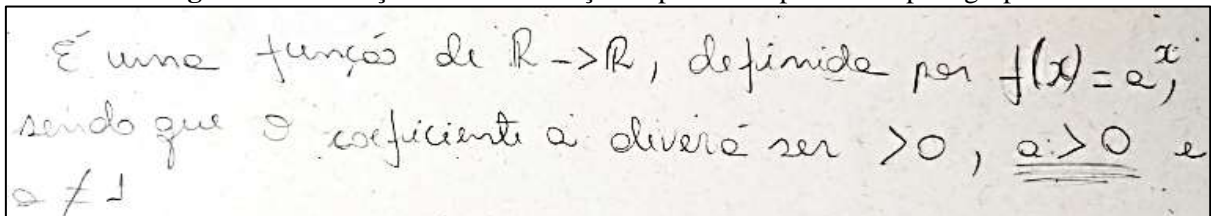 É uma função de ℝ->ℝ, definida por f(x)=a^x,
sendo que o coeficiente a deverá ser >0, a>0 e
a ≠ 1